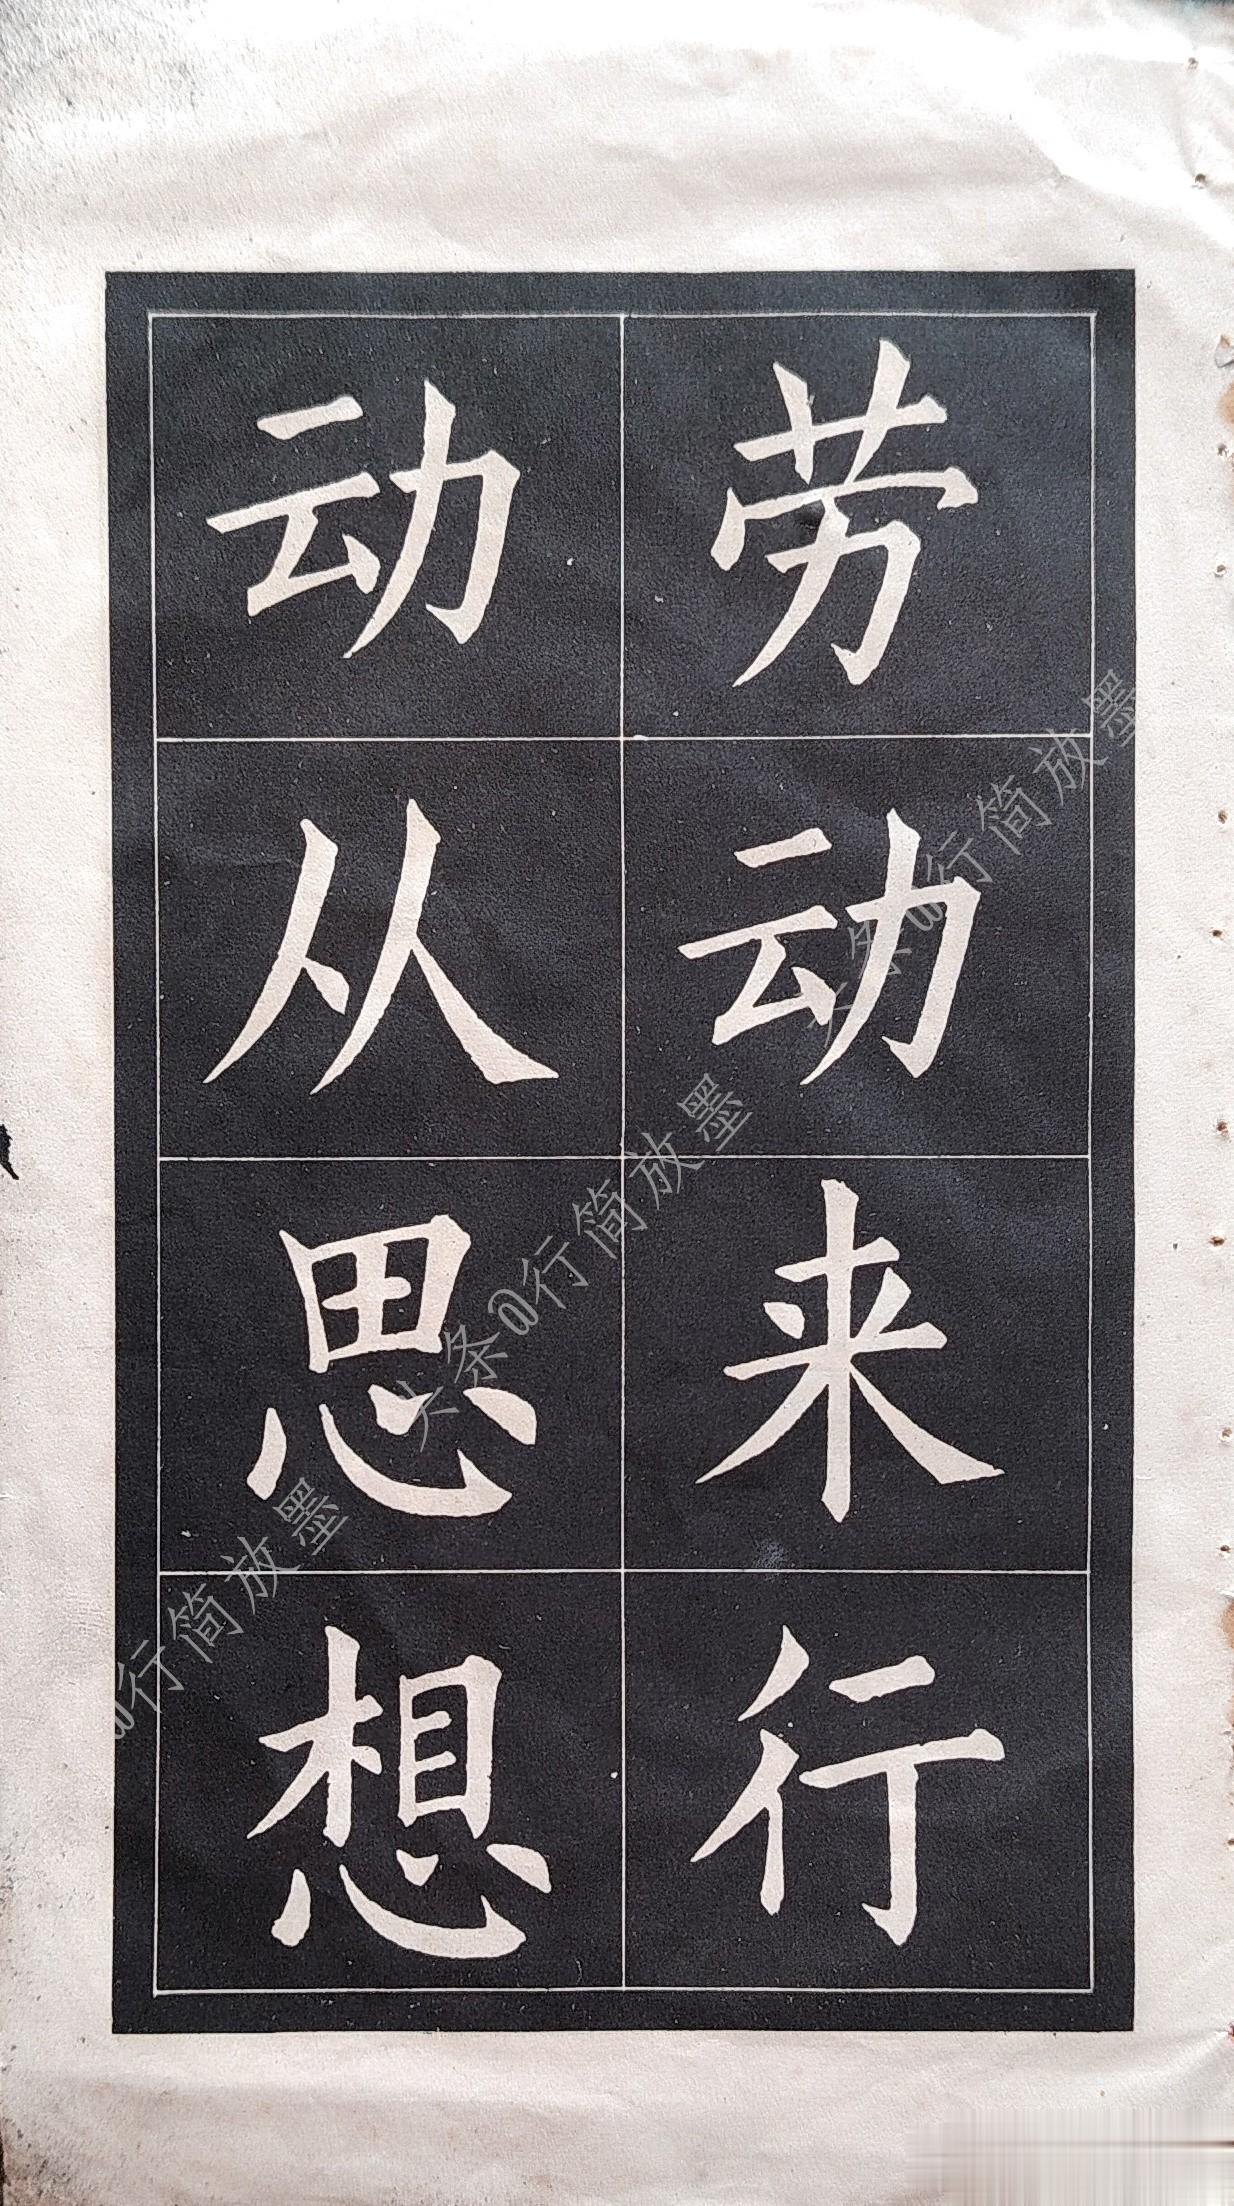 劳动来行
动从思想
头条@行简放墨
头条@行简放墨
@行简放墨